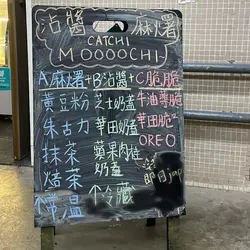 沾醬麻糬
CATCHI
MOOOOCHI
A麻糬+B沾醬+C脆脆
黃豆粉 芝士奶蓋 牛油薄脆
朱古力 華田奶蓋 華田脆
抹茶 蘋果肉桂奶蓋 OREO
焙茶
常温 冷藏
即日